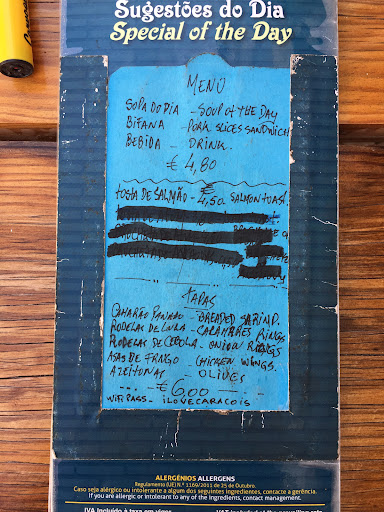 Sugestões do Dia
Special of the Day
MENÚ
SOPA DO DIA - SOUP OF THE DAY
BIFANA - PORK SLICES SANDWICH
BEBIDA - DRINK.
€ 4,80
TOSTA DE SALMÃO - € 4,50 SALMON TOAST.
TAPAS
PANADO - BREADED SARIND.
RODELAS DE LULA - CALAMARES RINGS
RODELAS DE CEBOLA - ONION RINGS
ASAS DE FRNGO - CHICKEN WINGS.
AZEITONAS - OLIVES
€ 6,00
WIFI PASS - ILOVECARACOIS
ALERGÉNIOS ALLERGENS
Regulamento (UE) N.º 1169/2011 de 25 de Outubro.
Caso seja alérgico ou intolerante a algum dos seguintes ingredientes, contacte a gerência.
If you are allergic or intolerant to any of the ingredients, contact management.
IVA incluído à taxa em vigor